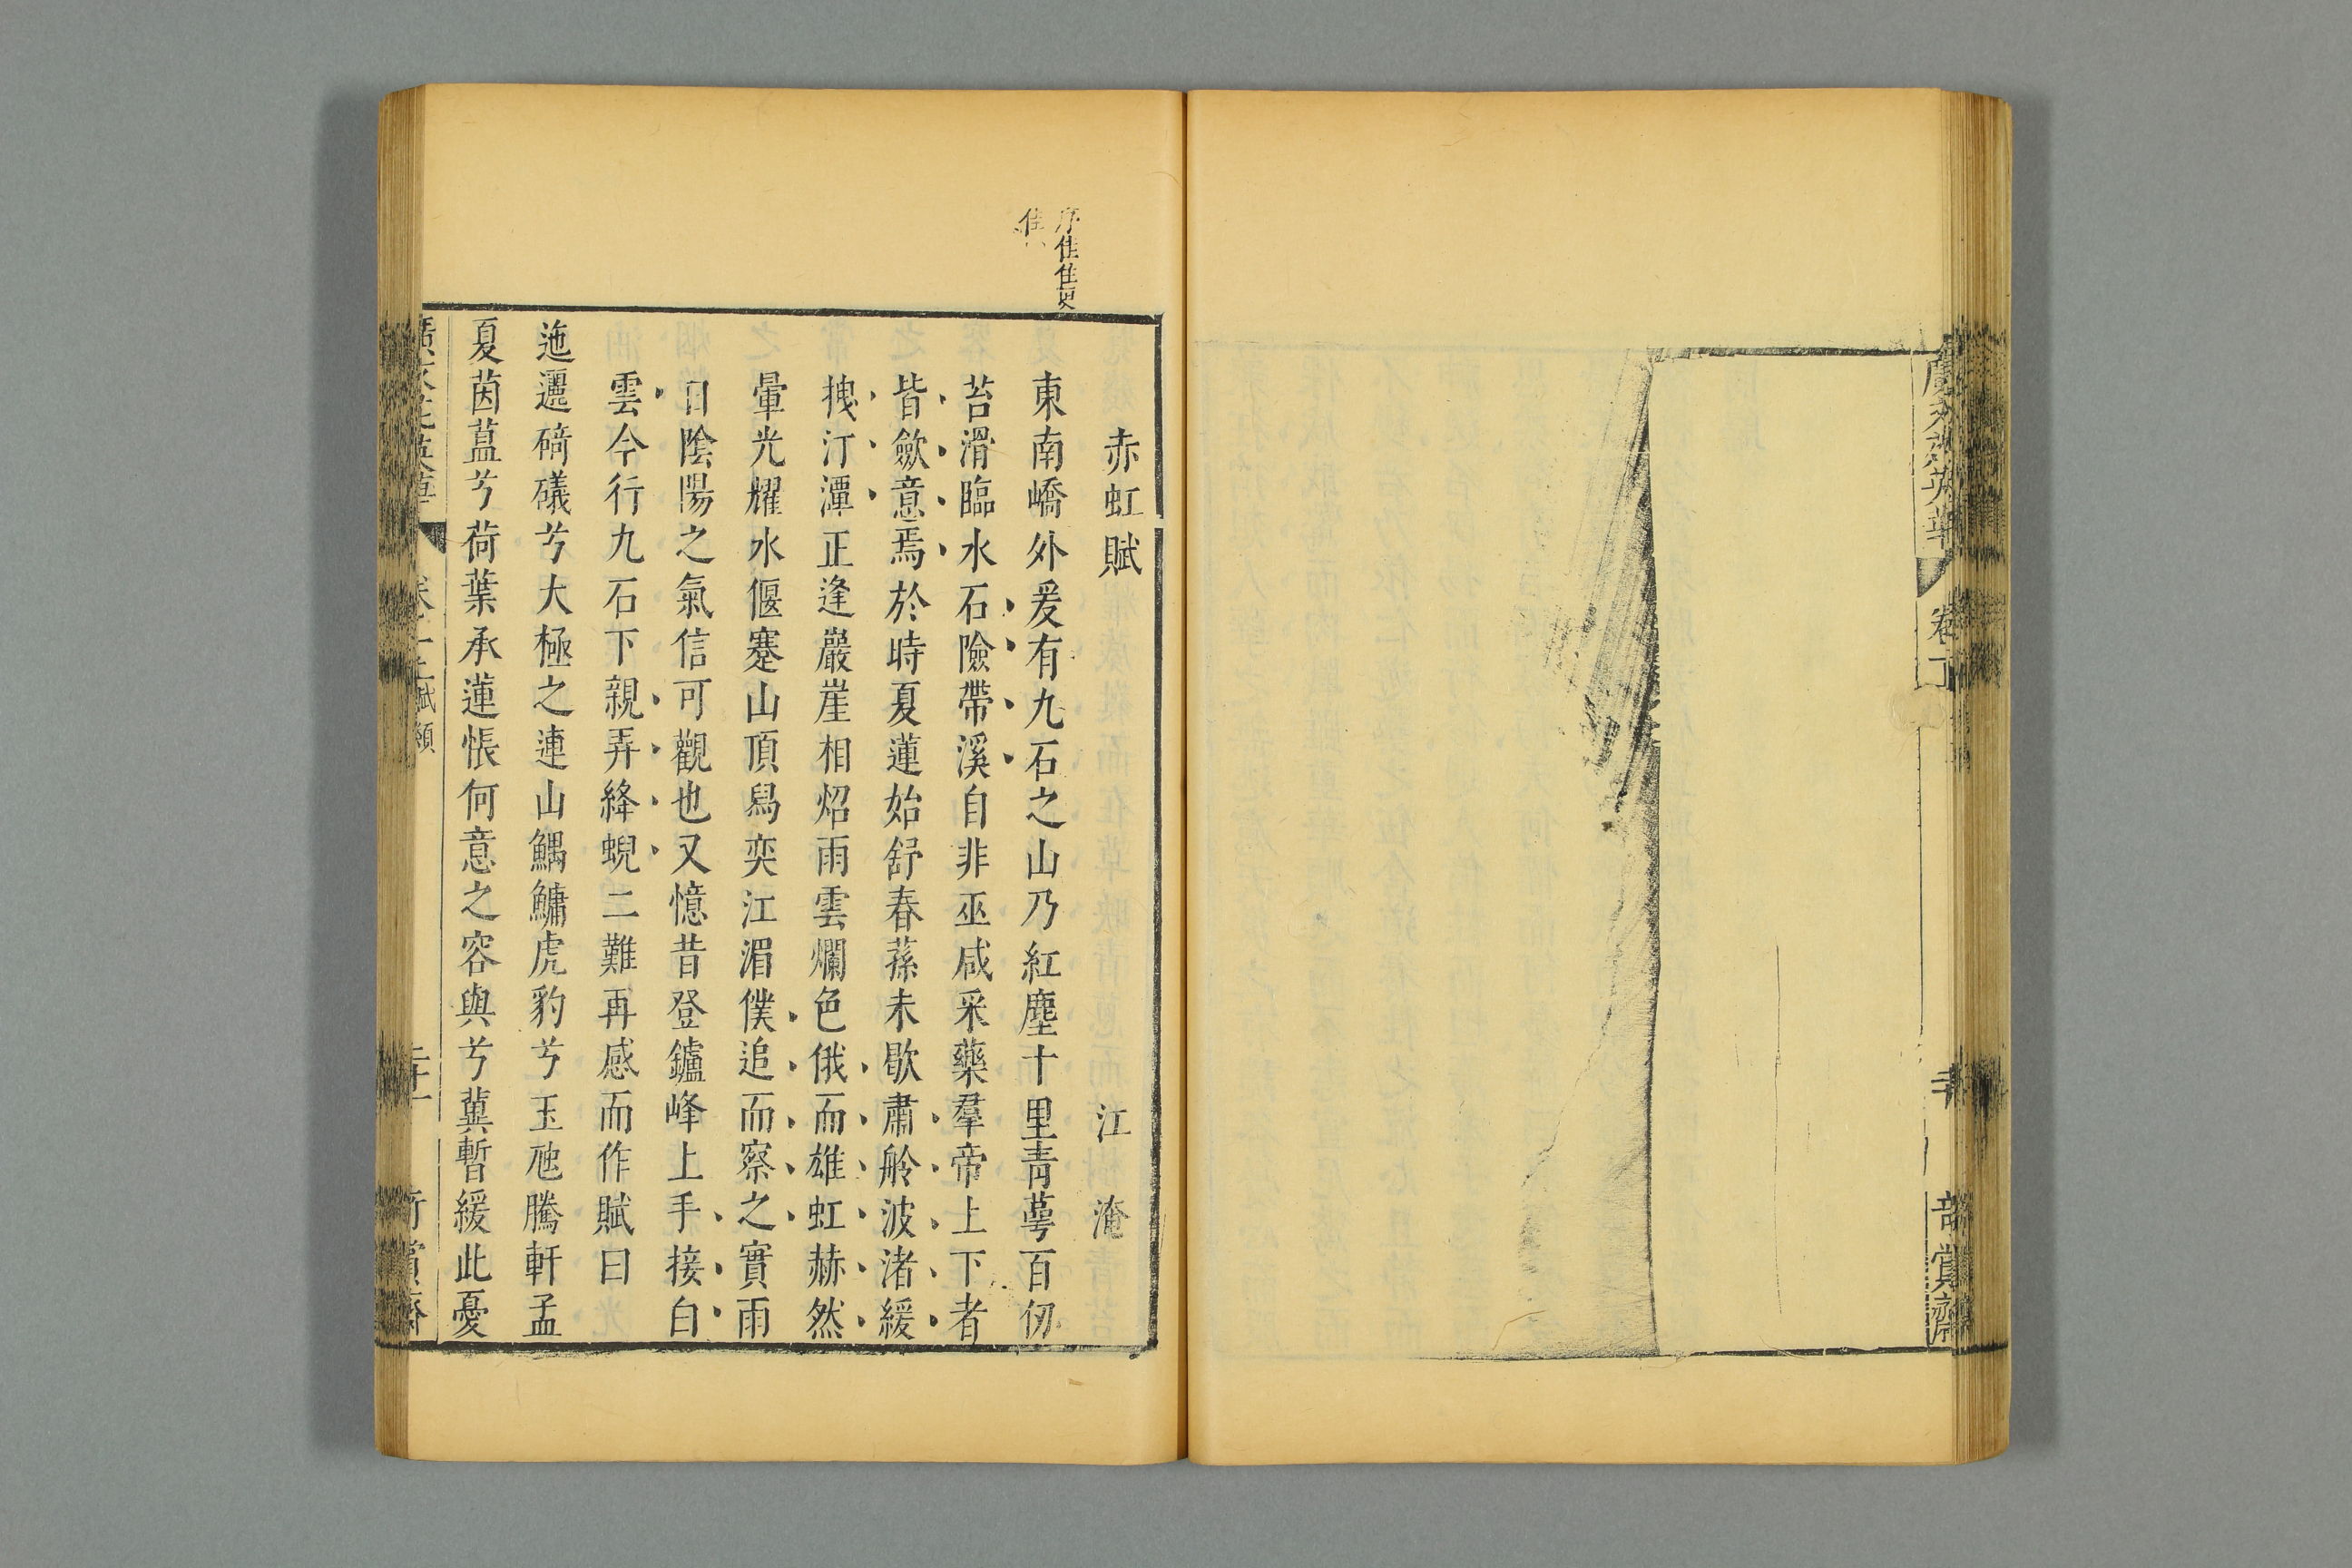 廣文選英華
卷一
二十
奇賞齋
序佳佳更
佳
赤虹賦 江 淹
東南嶠外爰有九石之山乃紅塵十里青蕚百仞
苔滑臨水石險帶溪自非巫咸采藥羣帝上下者
皆歛意焉於時夏蓮始舒春蓀未歇肅舲波渚緩
拽汀潭正逢巖崖相炤雨雲爛色俄而雄虹赫然
暈光耀水偃蹇山頂舄奕江湄僕追而察之實雨
日陰陽之氣信可觀也又憶昔登鑪峰上手接白
雲今行九石下親弄絳蜺二難再感而作賦曰
迤邐碕礒兮大極之連山鰅鱅虎豹兮玉虺騰軒孟
夏茵蒀兮荷葉承蓮悵何意之容與兮冀暫緩此憂
二十一